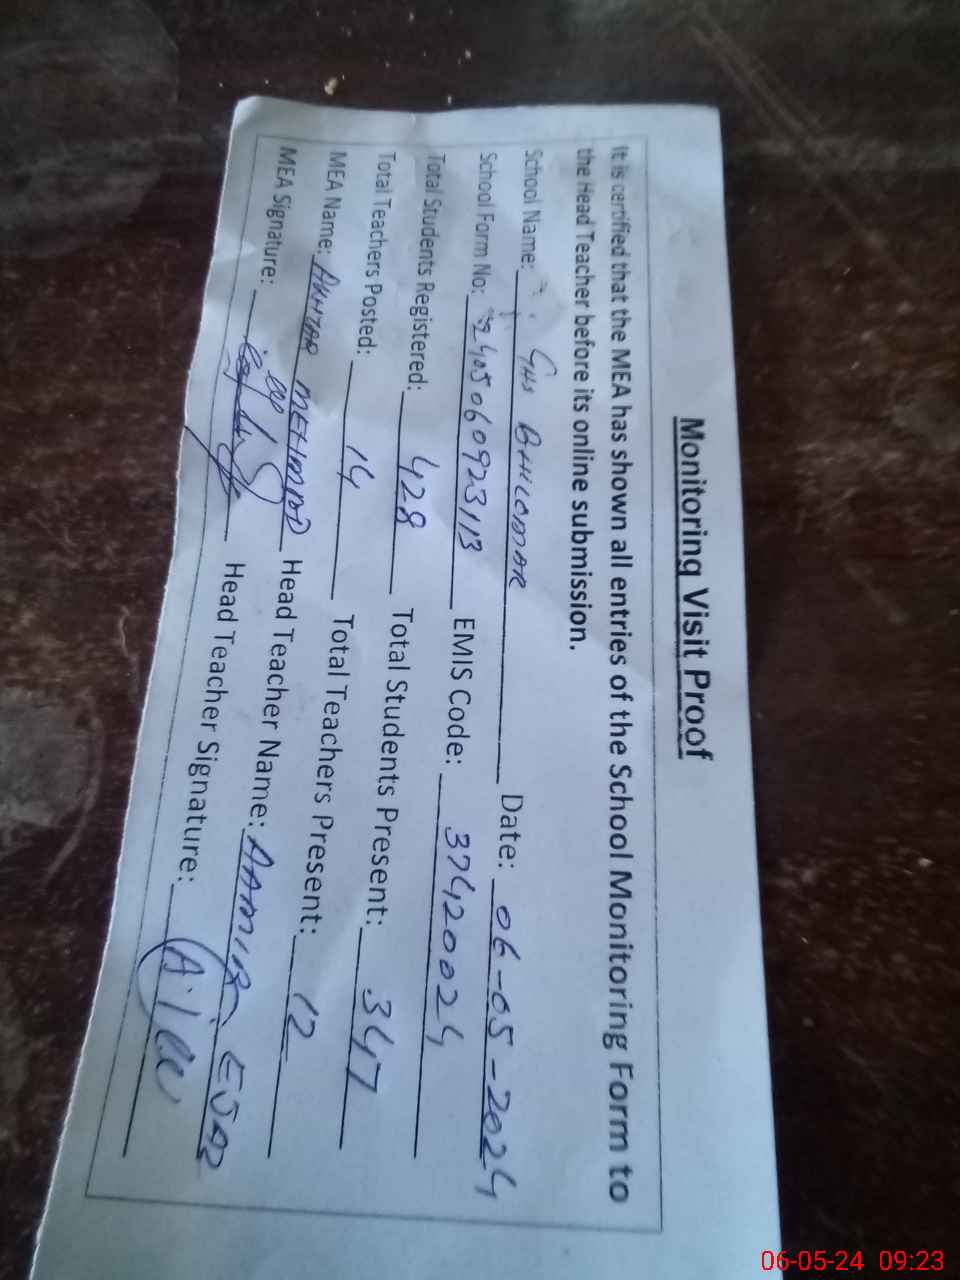 Monitoring Visit Proof
It is certified that the MEA has shown all entries of the School Monitoring Form to
the Head Teacher before its online submission.
School Name: GHS BHILOMAR Date: 06-05-2024
School Form No: 240506092313 EMIS Code: 37420024
Total Students Registered: 428 Total Students Present: 347
Total Teachers Posted: 14 Total Teachers Present: 12
MEA Name: AKHTAR MEHMOOD Head Teacher Name: AAMIR
MEA Signature: Head Teacher Signature:
06-05-24 09:23